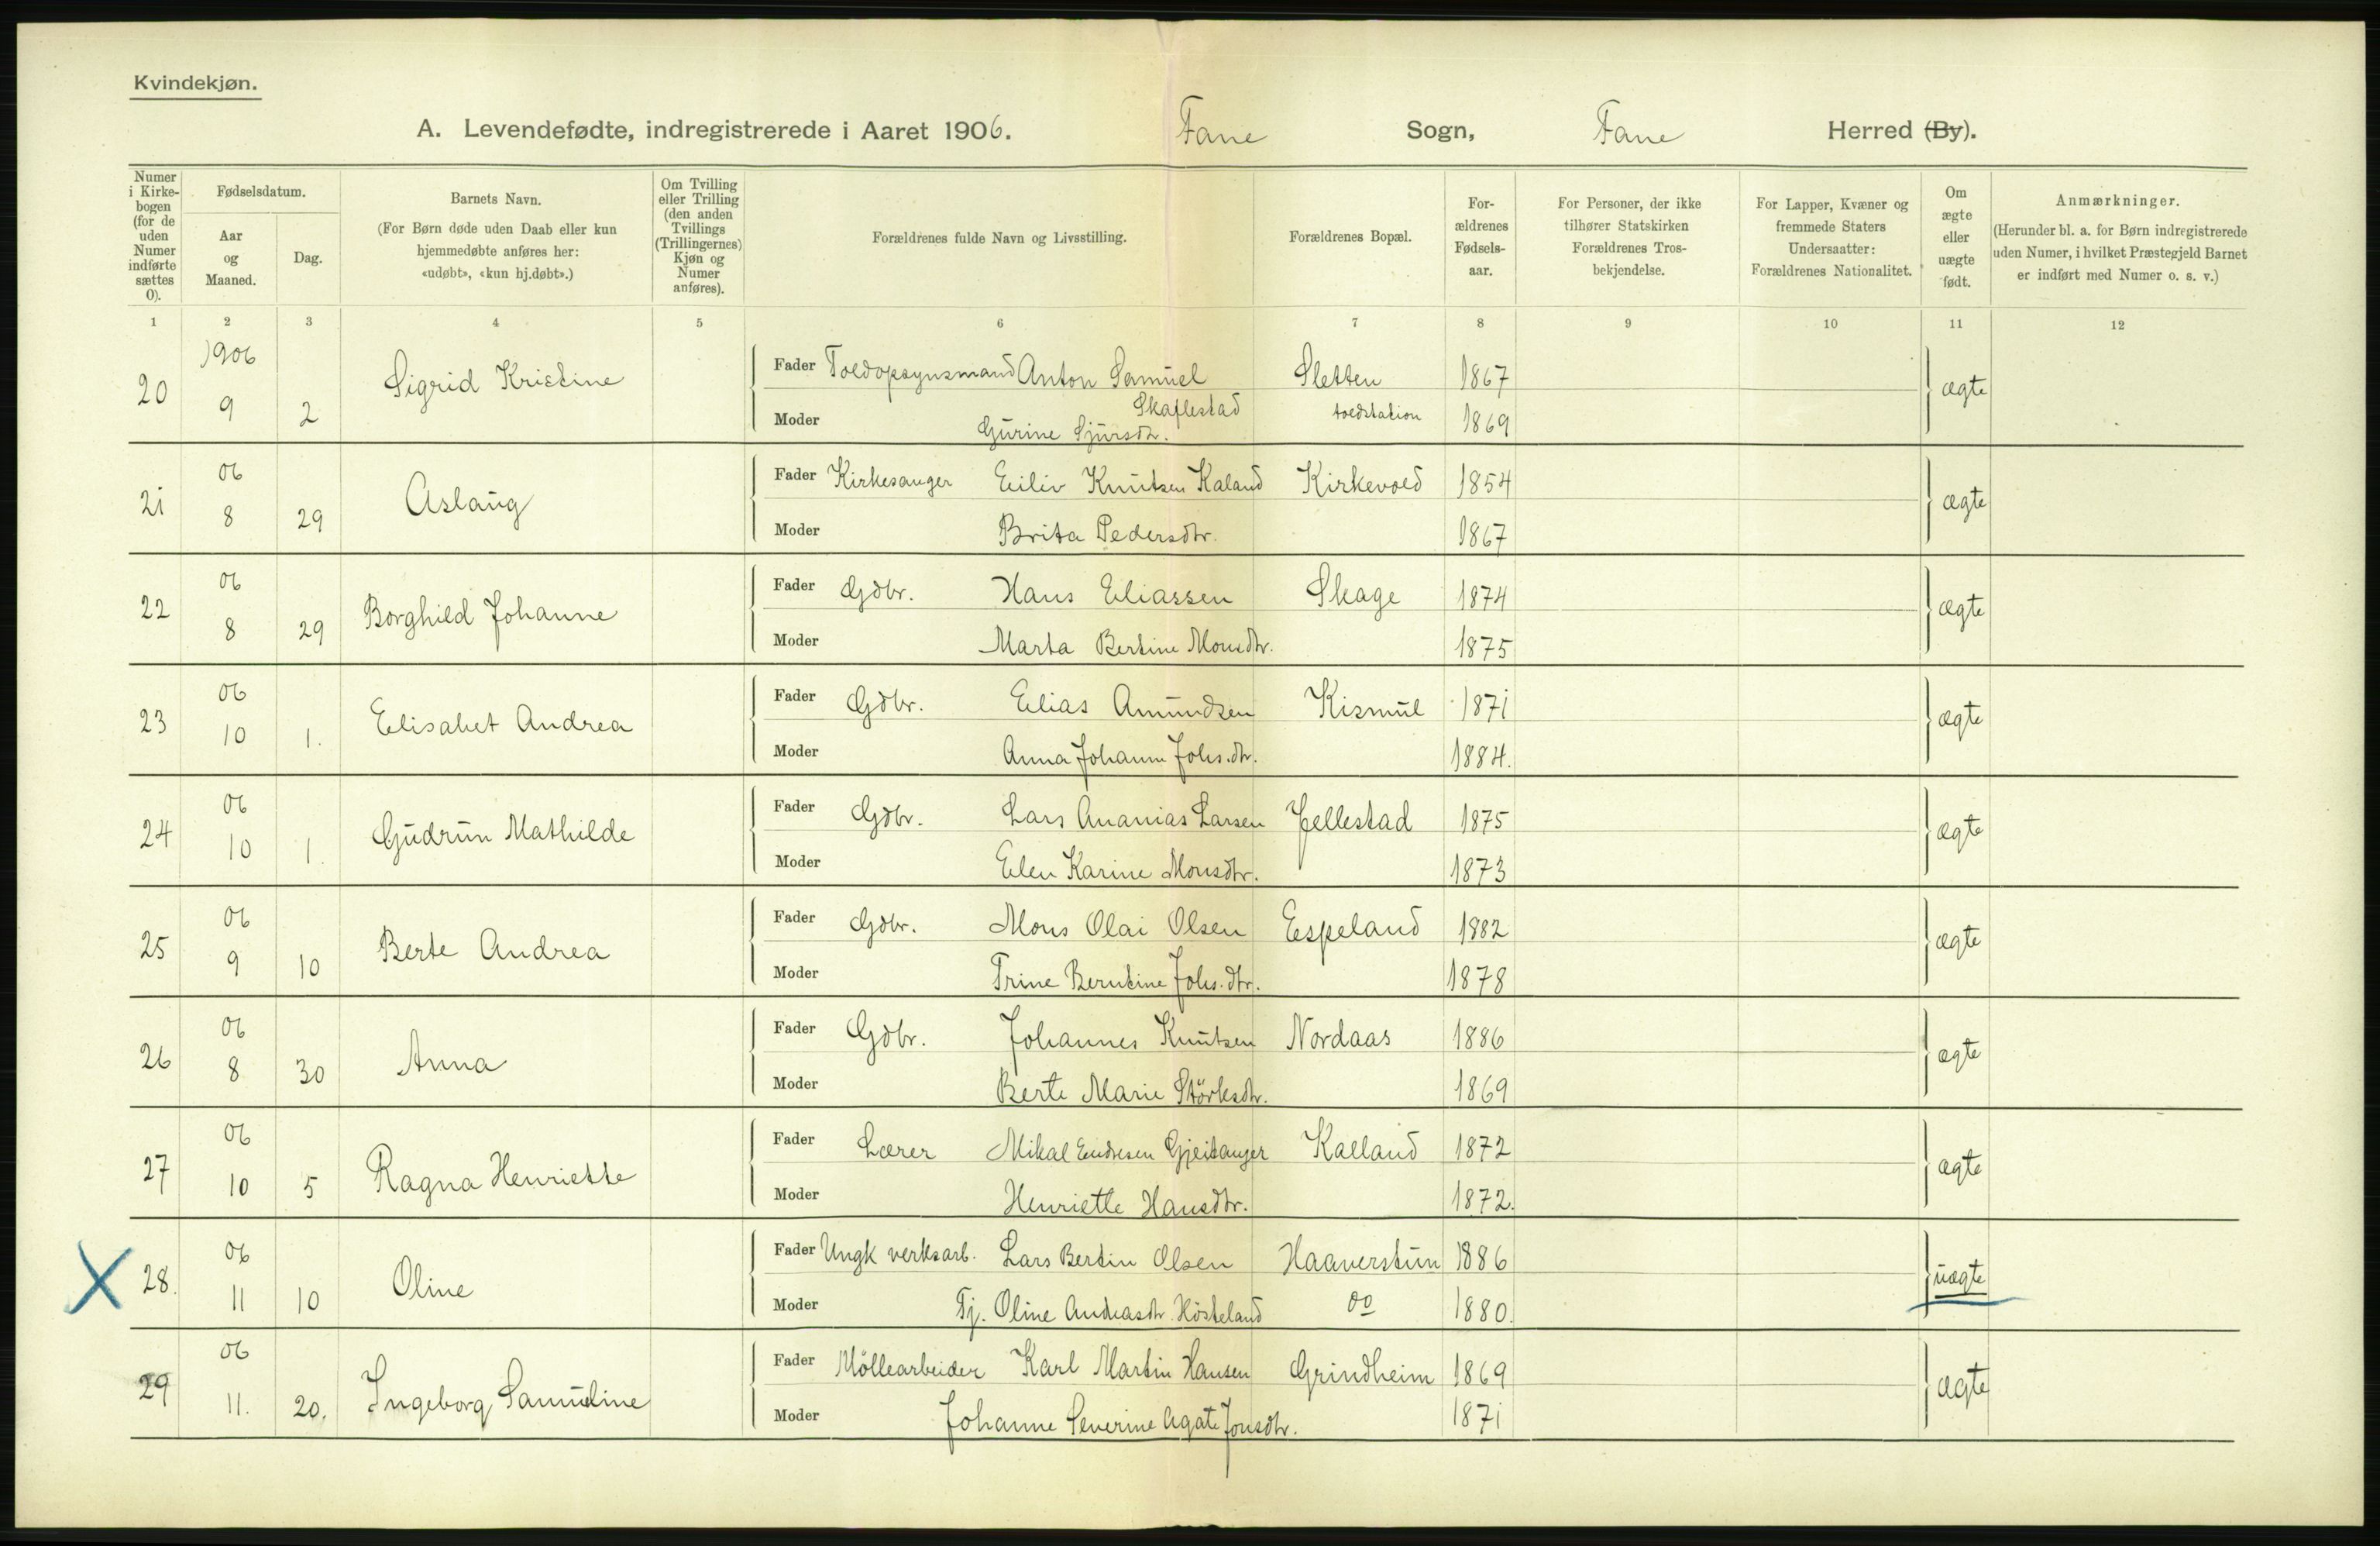 Kvindekjøn.
A. Levendefødte, indregistrerede i Aaret 1906. Fane Sogn, Fane Herred (By).
Numer i Kirkebogen (for de uden Numer indførte sættes 0).
Fødselsdatum.
Aar og Maaned.
Dag.
Barnets Navn.
(For Børn døde uden Daab eller kun hjemmedøbte anføres her: «udøbt», «kun hj.døbt».)
Om Tvilling eller Trilling (den anden Tvillings (Trillingernes) Kjøn og Numer anføres).
Forældrenes fulde Navn og Livsstilling.
Forældrenes Bopæl.
Forældrenes Fødselsaar.
For Personer, der ikke tilhører Statskirken Forældrenes Trosbekjendelse.
For Lapper, Kvæner og fremmede Staters Undersaatter: Forældrenes Nationalitet.
Om ægte eller uægte født.
Anmærkninger.
(Herunder bl. a. for Børn indregistrerede uden Numer, i hvilket Præstegjeld Barnet er indført med Numer o. s. v.)
1 2 3 4 5 6 7 8 9 10 11 12
20 1906 9 2 Sigrid Kristine Fader Toldopsynsmand Anton Samuel Skaflestad Sletten toldstation 1867 ægte
Moder Gurine Sjursdtr. 1869
21 06 8 29 Aslaug Fader Kirkesanger Eiliv Knutsen Kaland Kirkevold 1854 ægte
Moder Brita Pedersdtr. 1867
22 06 8 29 Borghild Johanne Fader Gdbr. Hans Eliassen Skage 1874 ægte
Moder Marta Bertine Monsdtr. 1875
23 06 10 1. Elisabet Andrea Fader Gdbr. Elias Amundsen Kismul 1871 ægte
Moder Anna Johanne Johs.dtr. 1884.
24 06 10 1. Gudrun Mathilde Fader Gdbr. Lars Ananias Larsen Hjellestad 1875 ægte
Moder Elen Karine Monsdtr. 1873
25 06 9 10 Berte Andrea Fader Gdbr. Mons Olai Olsen Espeland 1882 ægte
Moder Trine Berntine Johs.dtr. 1878
26 06 8 30 Anna Fader Gdbr. Johannes Knutsen Nordaas 1886 ægte
Moder Berte Marie Störksdtr. 1869
27 06 10 5 Ragna Henriette Fader Lærer Mikal Endresen Gjeitanger Kalland 1872 ægte
Moder Henriette Hansdtr. 1872.
X 28. 06 11 10 Oline Fader Ungk verksarb. Lars Bertin Olsen Haaverstun 1886 uægte
Moder Tj. Oline Andreasdtr. Hösteland do 1880.
29 06 11. 20. Ingeborg Samueline Fader Möllearbeider Karl Martin Hansen Grindheim 1869 ægte
Moder Johanne Severine Agate Jonsdtr. 1871